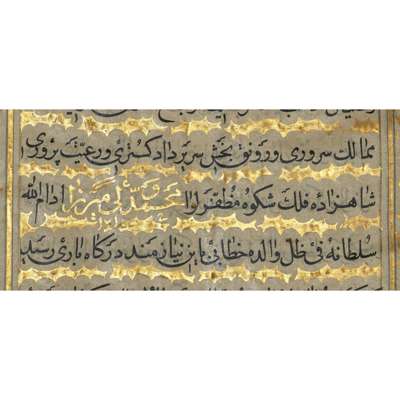 ممالك سروری و رونق بخش سریر داد کستری و رعیت پروری
شاهزادهٔ فلك شکوه مظفر لوا محمد ولی میرزا ادام الله
سلطانه فی ظل والده خطابی باین نیازمند درکاه باری رسید